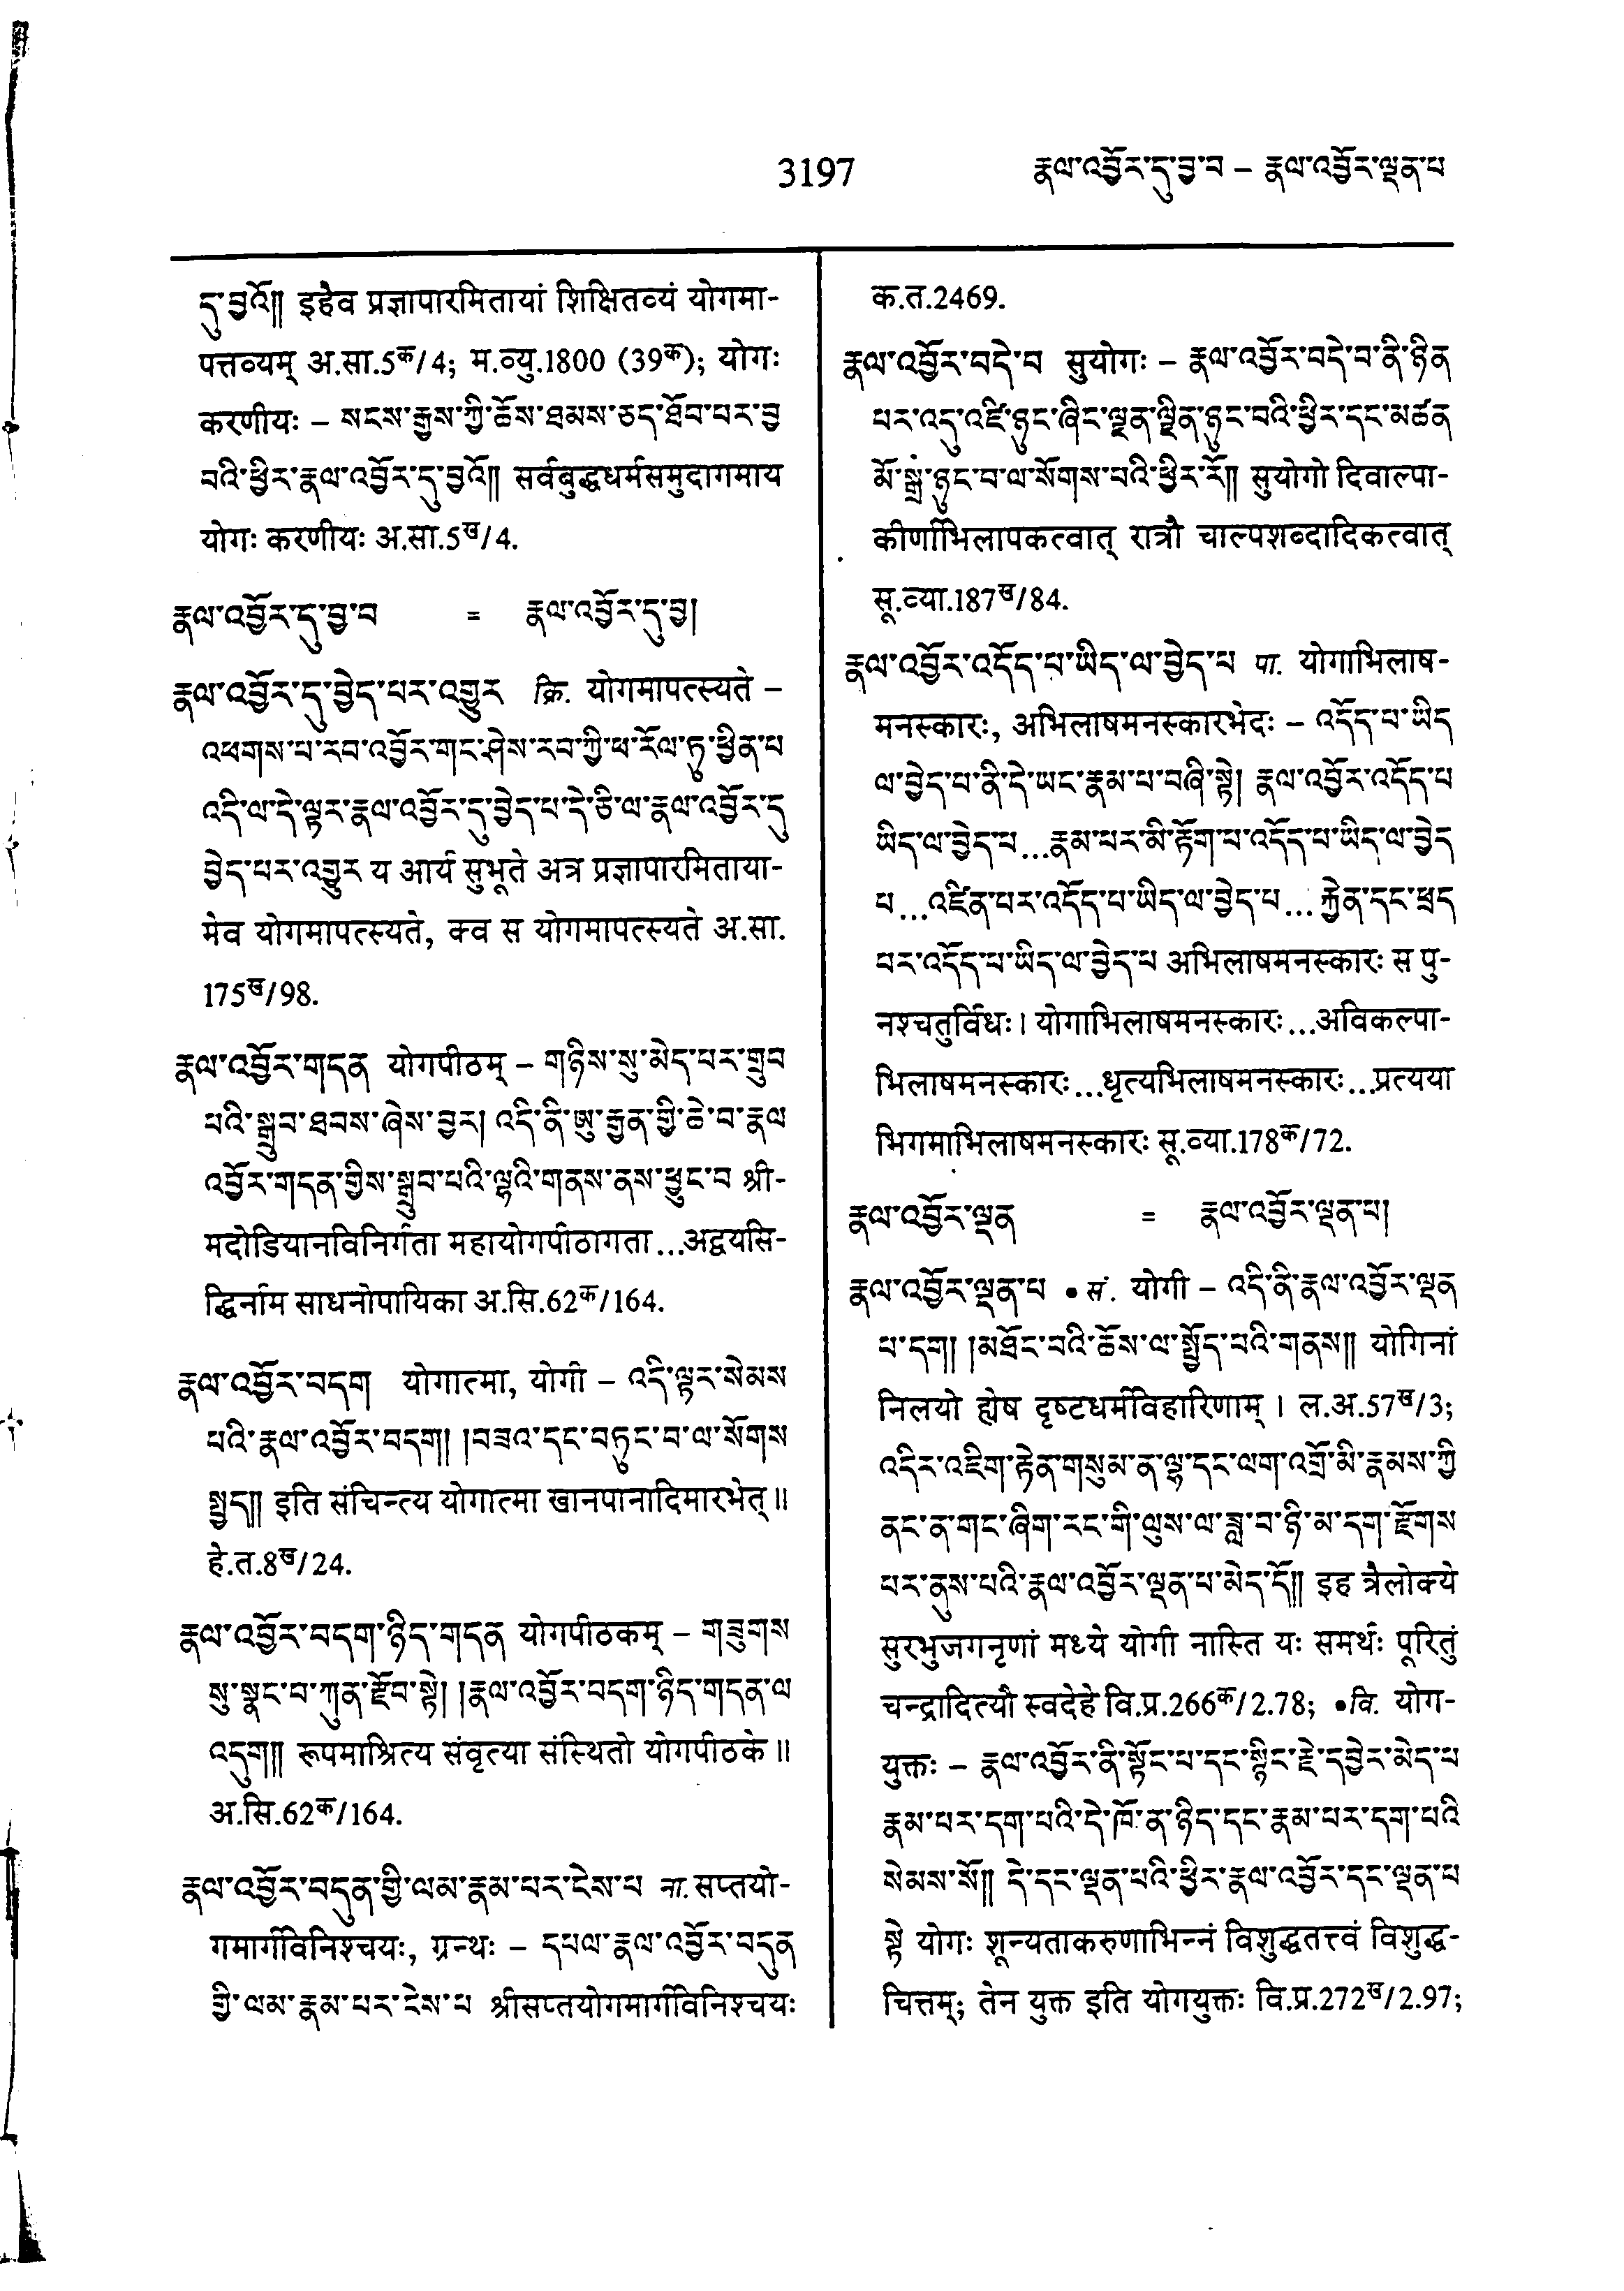 3197
རྣལ་འབྱོར་དུ་བྱ་བ – རྣལ་འབྱོར་ལྡན་པ
དུ་བྱའོ།། इहैव प्रज्ञापारमितायां शिक्षितव्यं योगमा-
पत्तव्यम् अ.सा.5क/4; म.व्यु.1800 (39क); योगः
करणीयः – སངས་རྒྱས་ཀྱི་ཆོས་ཐམས་ཅད་ཐོབ་པར་བྱ
བའི་ཕྱིར་རྣལ་འབྱོར་དུ་བྱའོ།། सर्वबुद्धधर्मसमुदागमाय
योगः करणीयः अ.सा.5ख/4.
རྣལ་འབྱོར་དུ་བྱ་བ = རྣལ་འབྱོར་དུ་བྱ།
རྣལ་འབྱོར་དུ་བྱེད་པར་འགྱུར क्रि. योगमापत्स्यते –
འཕགས་པ་རབ་འབྱོར་གང་ཤེས་རབ་ཀྱི་ཕ་རོལ་ཏུ་ཕྱིན་པ
འདི་ལ་དེ་ལྟར་རྣལ་འབྱོར་དུ་བྱེད་པ་དེ་ཅི་ལ་རྣལ་འབྱོར་དུ
བྱེད་པར་འགྱུར य आर्य सुभूते अत्र प्रज्ञापारमिताया-
मेव योगमापत्स्यते, क्व स योगमापत्स्यते अ.सा.
175ख/98.
རྣལ་འབྱོར་གདན योगपीठम् – གཉིས་སུ་མེད་པར་གྲུབ
པའི་སྒྲུབ་ཐབས་ཞེས་བྱར། འདི་ནི་ཨུ་རྒྱན་གྱི་ཆེ་བ་རྣལ
འབྱོར་གདན་གྱིས་སྒྲུབ་པའི་ལྷའི་གནས་ནས་ཕྱུང་བ श्री-
मदोडियानविनिर्गता महायोगपीठागता...अद्वयसि-
द्धिर्नाम साधनोपायिका अ.सि.62क/164.
རྣལ་འབྱོར་བདག योगात्मा, योगी – འདི་ལྟར་སེམས
པའི་རྣལ་འབྱོར་བདག། །བཟའ་དང་བཏུང་བ་ལ་སོགས
སྤྱད།། इति संचिन्त्य योगात्मा खानपानादिमारभेत्॥
हे.त.8ख/24.
རྣལ་འབྱོར་བདག་ཉིད་གདན योगपीठकम् – གཟུགས
སུ་སྣང་བ་ཀུན་རྫོབ་སྟེ། །རྣལ་འབྱོར་བདག་ཉིད་གདན་ལ
འདུག།། रूपमाश्रित्य संवृत्या संस्थितो योगपीठके॥
अ.सि.62क/164.
རྣལ་འབྱོར་བདུན་གྱི་ལམ་རྣམ་པར་ངེས་པ ना. सप्तयो-
गमार्गविनिश्चयः, ग्रन्थः – དཔལ་རྣལ་འབྱོར་བདུན
གྱི་ལམ་རྣམ་པར་ངེས་པ श्रीसप्तयोगमार्गविनिश्चयः
क.त.2469.
རྣལ་འབྱོར་བདེ་བ सुयोगः – རྣལ་འབྱོར་བདེ་བ་ནི་ཉིན
པར་འདུ་འཛི་ཉུང་ཞིང་ལྷན་ལྷིན་ཉུང་བའི་ཕྱིར་དང་མཚན
མོ་སྒྲ་ཉུང་བ་ལ་སོགས་པའི་ཕྱིར་རོ།། सुयोगो दिवाल्पा-
कीर्णाभिलापकत्वात् रात्रौ चाल्पशब्दादिकत्वात्
सू.व्या.187ख/84.
རྣལ་འབྱོར་འདོད་པ་ཡིད་ལ་བྱེད་པ पा. योगाभिलाष-
मनस्कारः, अभिलाषमनस्कारभेदः – འདོད་པ་ཡིད
ལ་བྱེད་པ་ནི་དེ་ཡང་རྣམ་པ་བཞི་སྟེ། རྣལ་འབྱོར་འདོད་པ
ཡིད་ལ་བྱེད་པ...རྣམ་པར་མི་རྟོག་པ་འདོད་པ་ཡིད་ལ་བྱེད
པ...འཛིན་པར་འདོད་པ་ཡིད་ལ་བྱེད་པ...རྐྱེན་དང་ཕྲད
པར་འདོད་པ་ཡིད་ལ་བྱེད་པ अभिलाषमनस्कारः स पु-
नश्चतुर्विधः। योगाभिलाषमनस्कारः...अविकल्पा-
भिलाषमनस्कारः...धृत्यभिलाषमनस्कारः...प्रत्यया
भिगमाभिलाषमनस्कारः सू.व्या.178क/72.
རྣལ་འབྱོར་ལྡན = རྣལ་འབྱོར་ལྡན་པ།
རྣལ་འབྱོར་ལྡན་པ • सं. योगी – འདི་ནི་རྣལ་འབྱོར་ལྡན
པ་དག། །མཐོང་བའི་ཆོས་ལ་སྤྱོད་པའི་གནས།། योगिनां
निलयो ह्येष दृष्टधर्मविहारिणाम्। ल.अ.57ख/3;
འདིར་འཇིག་རྟེན་གསུམ་ན་ལྷ་དང་ལག་འགྲོ་མི་རྣམས་ཀྱི
ནང་ན་གང་ཞིག་རང་གི་ལུས་ལ་ཟླ་བ་ཉི་མ་དག་རྫོགས
པར་ནུས་པའི་རྣལ་འབྱོར་ལྡན་པ་མེད་དོ།། इह त्रैलोक्ये
सुरभुजगनृणां मध्ये योगी नास्ति यः समर्थः पूरितुं
चन्द्रादित्यौ स्वदेहे वि.प्र.266क/2.78; •वि. योग-
युक्तः – རྣལ་འབྱོར་ནི་སྟོང་པ་དང་སྙིང་རྗེ་དབྱེར་མེད་པ
རྣམ་པར་དག་པའི་དེ་ཁོ་ན་ཉིད་དང་རྣམ་པར་དག་པའི
སེམས་སོ།། དེ་དང་ལྡན་པའི་ཕྱིར་རྣལ་འབྱོར་དང་ལྡན་པ
སྟེ योगः शून्यताकरुणाभिन्नं विशुद्धतत्त्वं विशुद्ध-
चित्तम्; तेन युक्त इति योगयुक्तः वि.प्र.272ख/2.97;